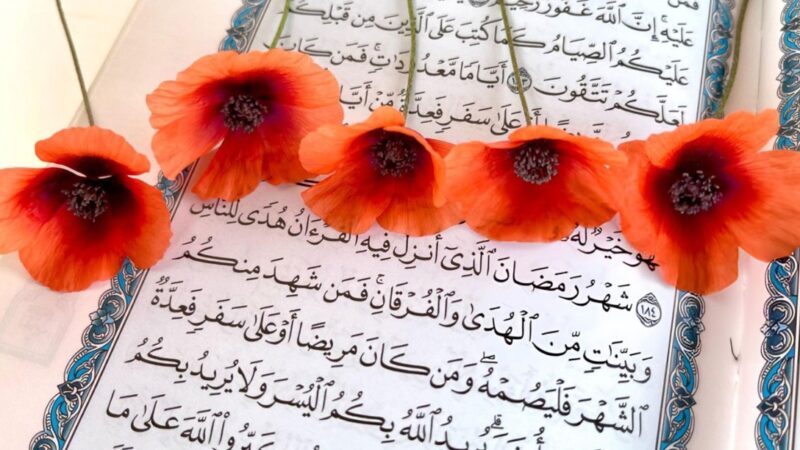 عَلَيْهِۚ إِنَّ ٱللَّهَ غَفُورٌ
عَلَيْكُمُ ٱلصِّيَامُ كَمَا كُتِبَ عَلَى ٱلَّذِينَ مِن قَبْلِكُمْ
لَعَلَّكُمْ تَتَّقُونَ ١٨٣ أَيَّامًا مَّعْدُودَٰتٍۚ فَمَن كَانَ
أَوْ عَلَىٰ سَفَرٍ فَعِدَّةٌ مِّنْ
فَهُوَ خَيْرٌ لَّهُۥ
١٨٤ شَهْرُ رَمَضَانَ ٱلَّذِىٓ أُنزِلَ فِيهِ ٱلْقُرْءَانُ هُدًى لِّلنَّاسِ
وَبَيِّنَٰتٍ مِّنَ ٱلْهُدَىٰ وَٱلْفُرْقَانِۚ فَمَن شَهِدَ مِنكُمُ
ٱلشَّهْرَ فَلْيَصُمْهُۖ وَمَن كَانَ مَرِيضًا أَوْ عَلَىٰ سَفَرٍ فَعِدَّةٌ
يُرِيدُ ٱللَّهُ بِكُمُ ٱلْيُسْرَ وَلَا يُرِيدُ بِكُمُ
ٱللَّهَ عَلَىٰ مَا